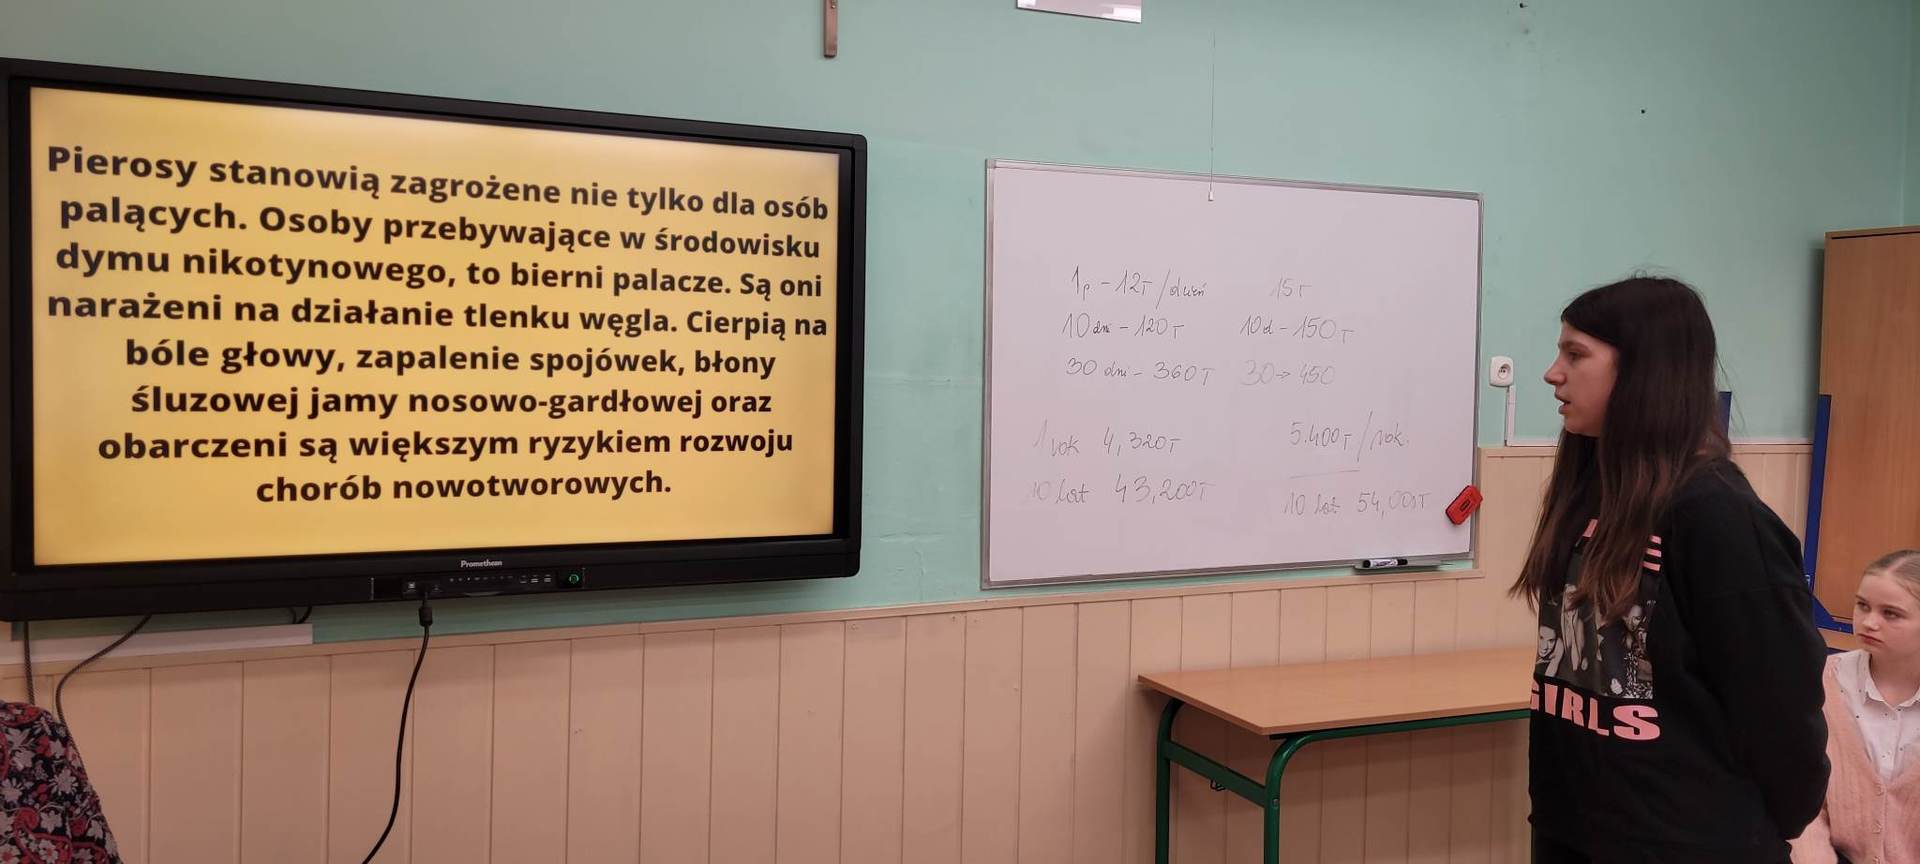 Pierosy stanowią zagrożene nie tylko dla osób
palących. Osoby przebywające w środowisku
dymu nikotynowego, to bierni palacze. Są oni
narażeni na działanie tlenku węgla. Cierpią na
bóle głowy, zapalenie spojówek, błony
śluzowej jamy nosowo-gardłowej oraz
obarczeni są większym ryzykiem rozwoju
chorób nowotworowych.
Promethean
1p - 12T/dzień
10 dni - 120T
30 dni - 360T
1 rok 4,320T
10 lat 43,200T
15T
10d - 150T
30 → 450
5.400T/rok.
10 lat 54,000T
GIRLS